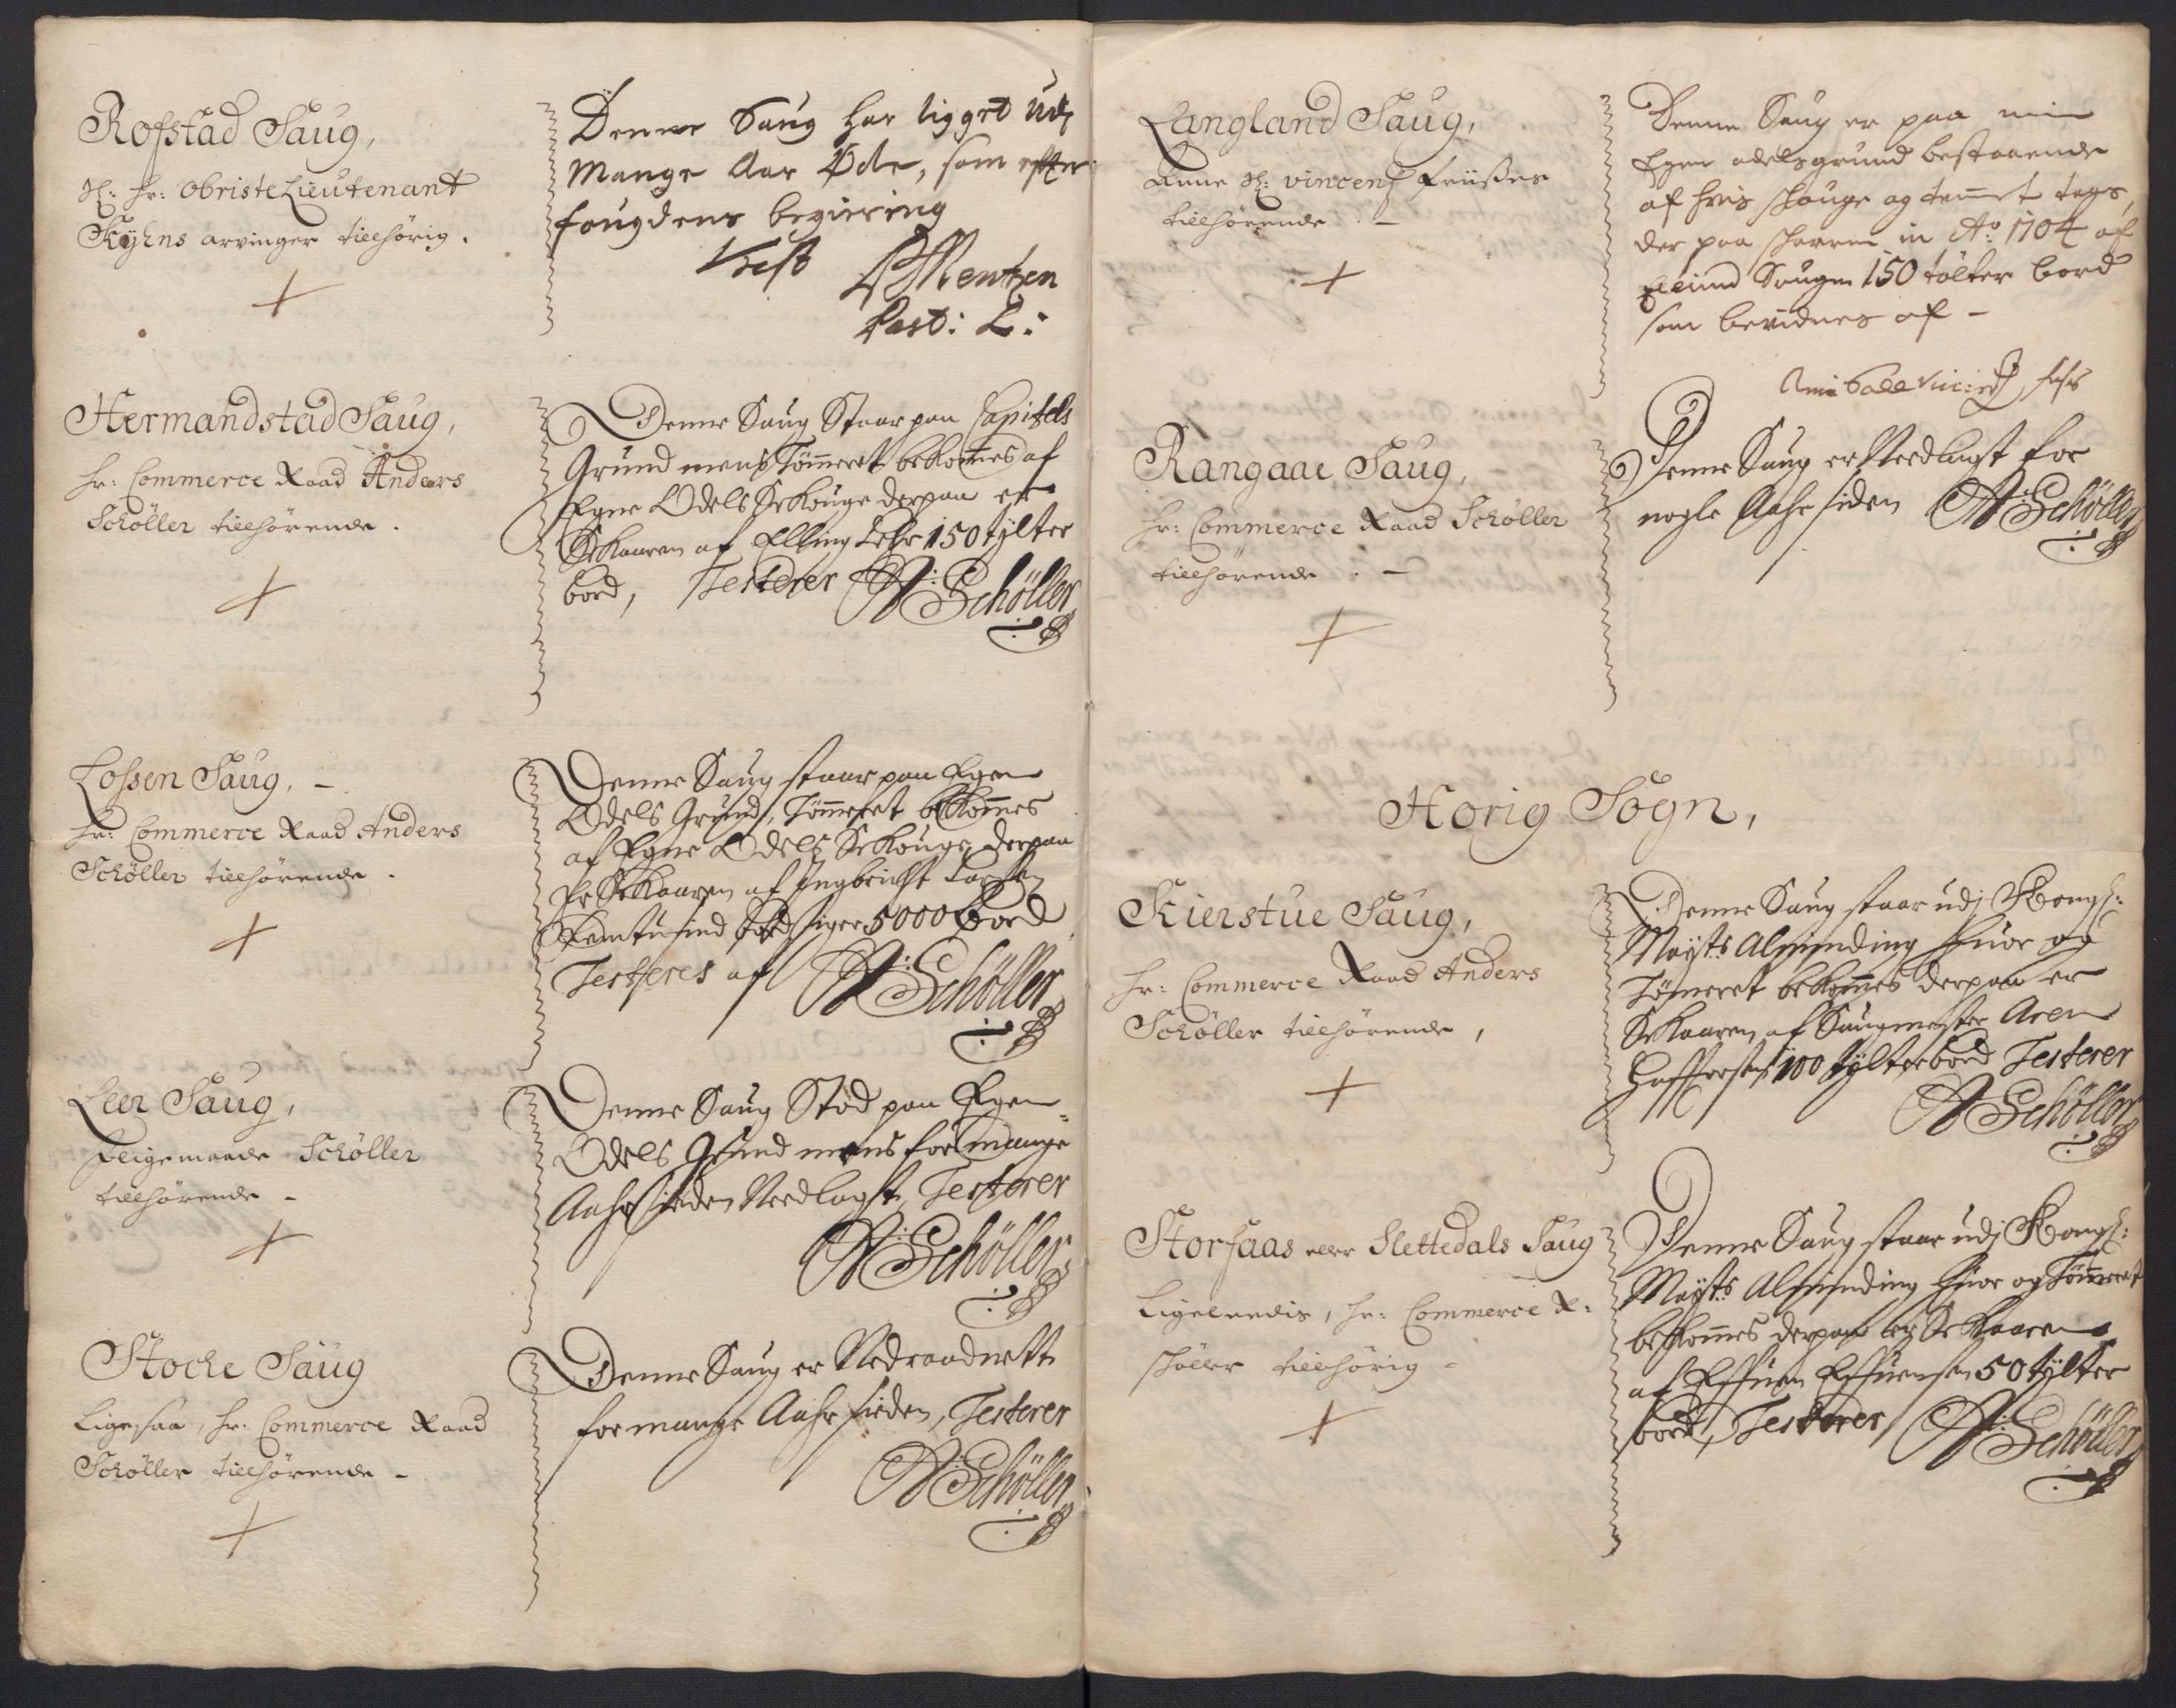 Rofstad Saug,
Sl: Hr: Obriste Lieutenant
Kÿhns arvinger tilhørig.
Denne Saug har ligget udj
Mange Aar Øde, som efter
fougdens begiering
L Mentzen
Past: L:
Hermandstad Saug,
Hr: Commerce Raad Anders
Schøller tilhørende.
Denne Saug Staar paa Capitels
Grund mens Tømmeret bekommes af
Egne Odels Skouge derpaa er
Skaaren af Elling Lehr 150 tÿlter
bord, Testerer A: Schøller
Lossen Saug, -
Hr: Commerce Raad Anders
Schøller tilhørende.
Denne Saug staar paa Egen
Odels Grund, Tømmeret bekommes
af Egne Odels Skouge, derpaa
Er Skaaren af Ingbricht Larsen
Femtusind bord siger 5000 Bord
Testeres af A: Schøller
Leer Saug,
Ligemaade Schøller
tilhørende -
Denne Saug Stod paa Egen
Odels Grund mens for mange
Aahr sieden Nedlagt, Testerer
A: Schøller
Stocke Saug
Ligesaa, Hr: Commerce Raad
Schøller tilhørende -
Denne Saug er Nedraadnett
for mange Aahr sieden, Testerer
A: Schøller
Langland Saug,
Anne Sl: Vincentz Friises
tilhørende. -
Denne Saug er paa min
Egen odelsgrund bestaaende
af hvis skouge og tømmet tages,
der paa skaaren in Ao: 1704 af
Saugen 150 tólter bord
som bevidnes af -
Rangaae Saug,
Hr: Commerce Raad Schøller
tilhørende. -
Denne Saug er Needlagt for
nogle Aahr siden A: Schøller
Horig Sogn,
Kierstue Saug,
Hr: Commerce Raad Anders
Schøller tilhørende,
Denne Saug staar udj Kongl:
Maÿts Alminding hvor og
Tømeret bekommes derpaa er
Skaaren af Saugmester Aren
100 tÿlter bord Testerer
A: Schøller
Storsaas eller Slettedals Saug
Ligeledis, Hr: Commerce R:
Schøller tilhørig -
Denne Saug staar udj Kongl:
Maÿts Alminding hvor og Tømmeret
bekommes derpaa er Skaaren
af Effuen Effuensen 50 tÿlter
bord, Testerer A: Schøller